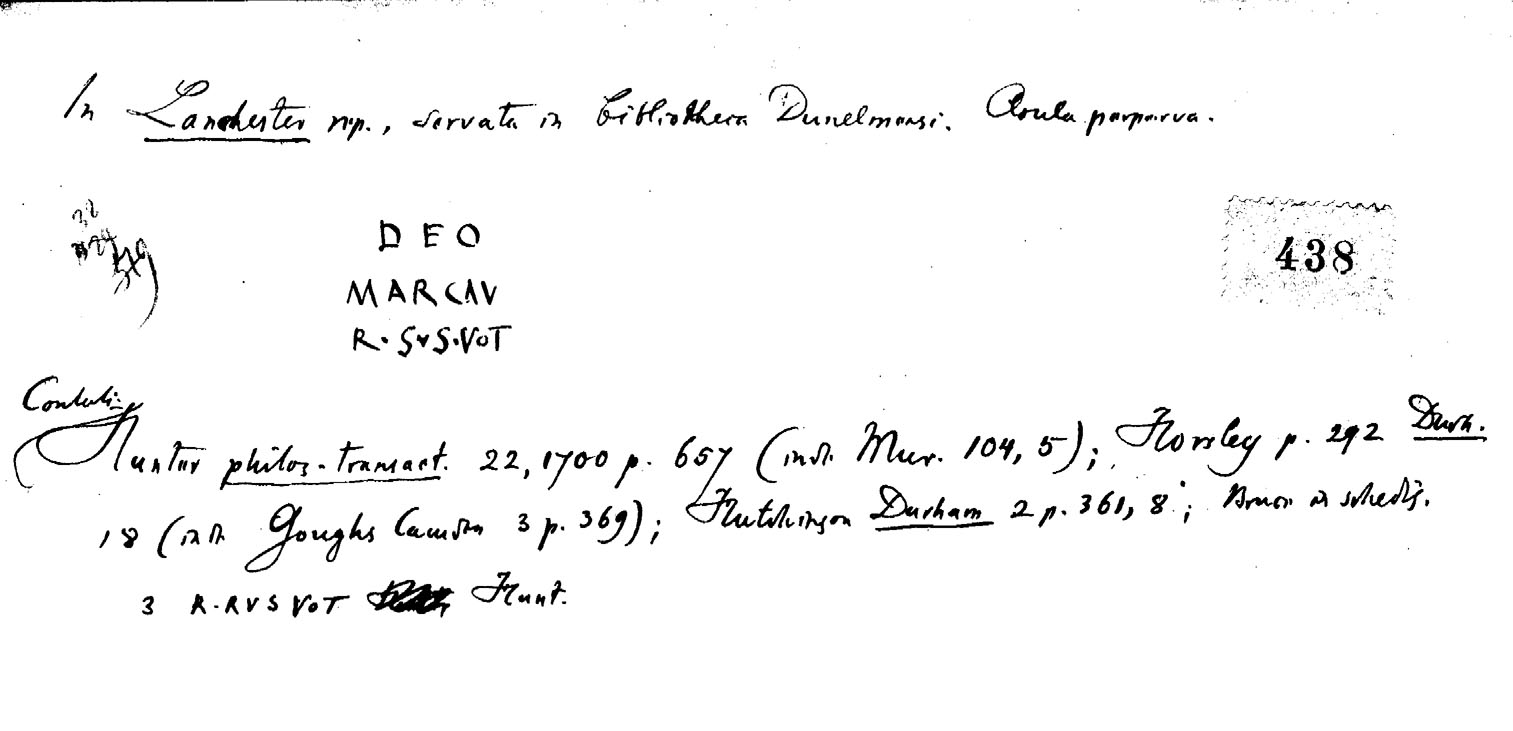 In Lanchester rep., servata in bibliotheca Dunelmensi. Arula perparva.
D E O
438
MARCAV
R. SVS.VOT
Contuli.
Hunter philos. transact. 22, 1700 p. 657 (inde Mur. 104, 5); Horsley p. 292 Durh.
18 (inde Goughs Camden 3 p. 369); Hutchinson Durham 2 p. 361, 8; Bruce in schedis.
3 R.RVS VOT Hunt.